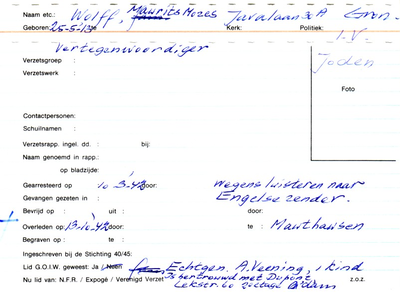 Naam etc.: Wolff, Maurits Mozes Javalaan 30A Gron.
Geboren: 25-5-'13 te Kerk: Politiek: I.V.
Vertegenwoordiger Joden
Verzetsgroep :
Verzetswerk :
Foto
Contactpersonen:
Schuilnamen :
Verzetsrapp. ingel. dd. : bij:
Naam genoemd in rapp.:
op bladzijde:
Gearresteerd op : 10-3-'42 door: wegens luisteren naar
Gevangen gezeten in : Engelse zender.
Bevrijd op : uit : door:
Overleden op : 13-10-42 door: te : Mauthausen
Begraven op : te :
Ingeschreven bij de Stichting 40/45:
Lid G.O.I.W. geweest: Ja / Neen Echtgen. A. Veening, 1 kind
Nu lid van: N.F.R. / Expogé / Verenigd Verzet Is hertrouwd met Dupont z.o.z.